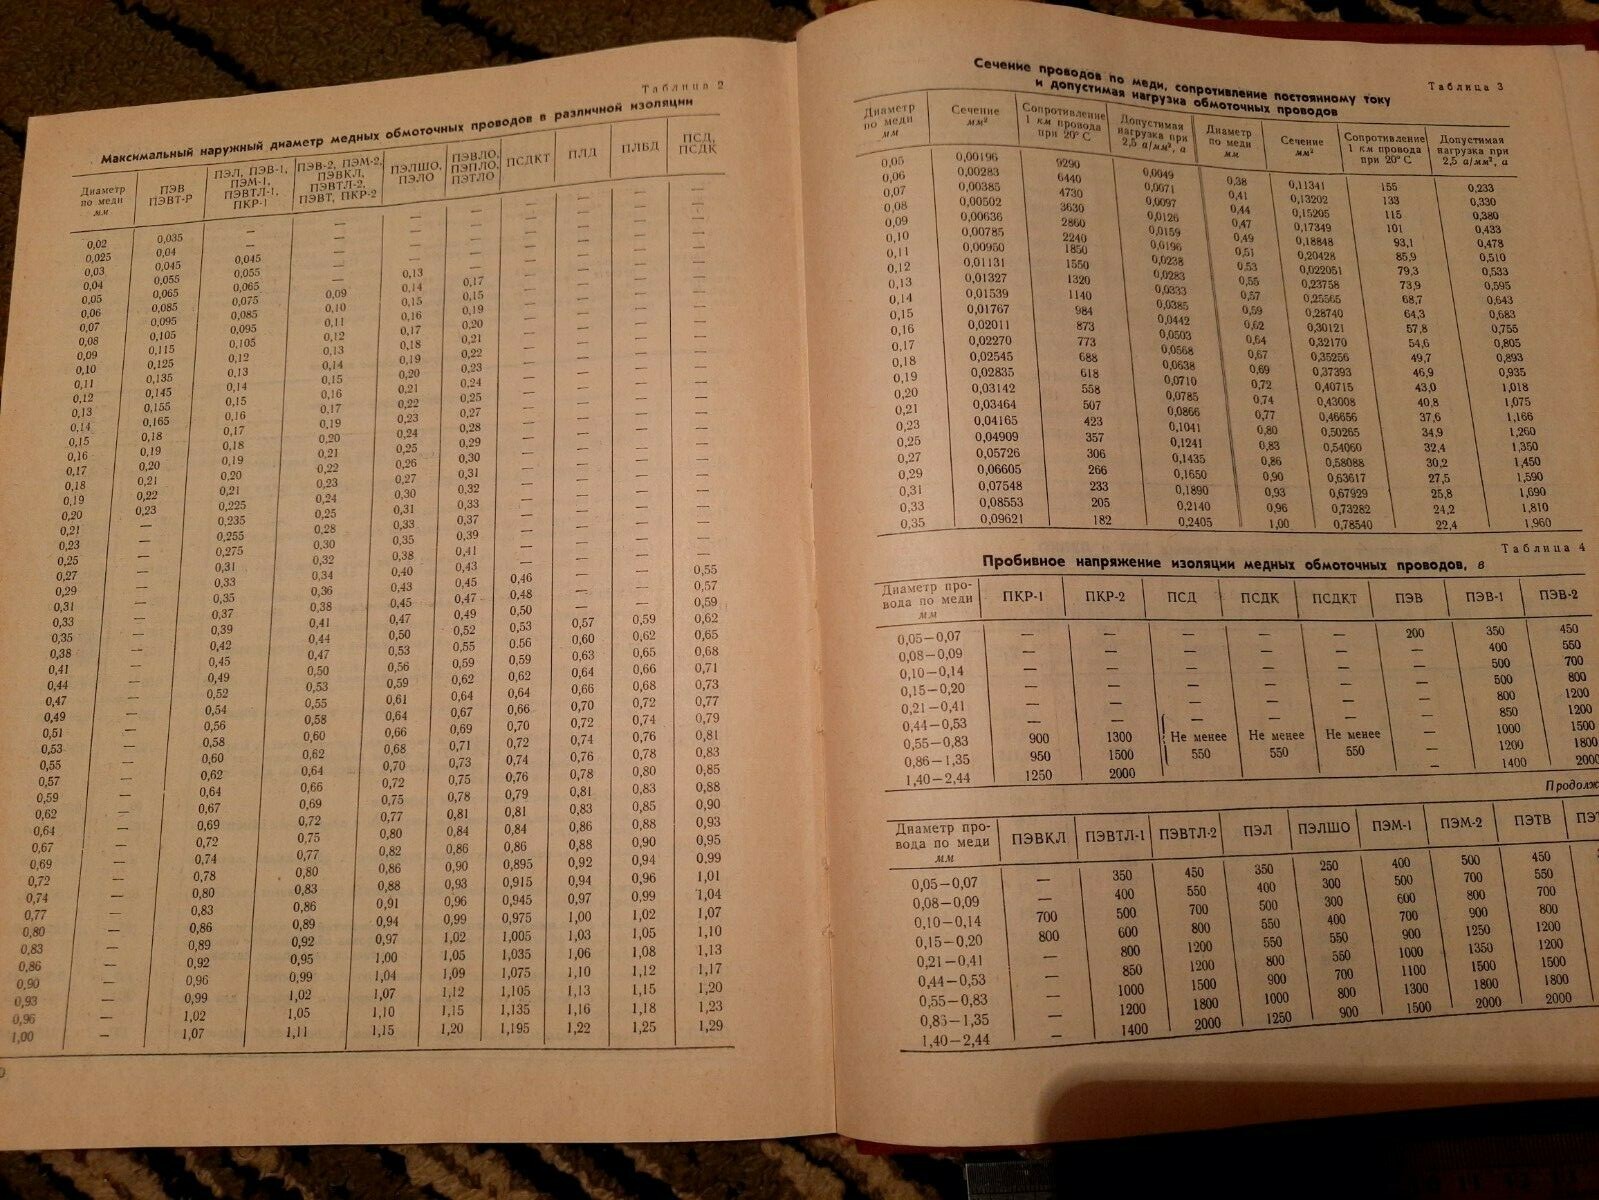 Таблица 2
Максимальный наружный диаметр медных обмоточных проводов в различной изоляции
Диаметр по меди мм | ПЭВ ПЭВТ-Р | ПЭЛ, ПЭВ-1, ПЭМ-1, ПЭВТЛ-1, ПКР-1 | ПЭВ-2, ПЭМ-2, ПЭВКЛ, ПЭВТЛ-2, ПЭВТ, ПКР-2 | ПЭЛШО, ПЭЛО | ПЭВЛО, ПЭПЛО, ПЭТЛО | ПСДКТ | ПЛД | ПЛБД | ПСД, ПСДК
0,02 0,035 — — — — — — — —
0,025 0,04 — — — — — — — —
0,03 0,045 0,045 — — — — — — —
0,04 0,055 0,055 — — — — — — —
0,05 0,065 0,065 — 0,13 — — — — —
0,06 0,085 0,075 0,09 0,14 0,17 — — — —
0,07 0,095 0,085 0,10 0,15 0,15 — — — —
0,08 0,105 0,095 0,11 0,16 0,19 — — — —
0,09 0,115 0,105 0,12 0,17 0,20 — — — —
0,10 0,125 0,12 0,13 0,18 0,21 — — — —
0,11 0,135 0,13 0,14 0,19 0,22 — — — —
0,12 0,145 0,14 0,15 0,20 0,23 — — — —
0,13 0,155 0,15 0,16 0,21 0,24 — — — —
0,14 0,165 0,16 0,17 0,22 0,25 — — — —
0,15 0,18 0,17 0,19 0,23 0,27 — — — —
0,16 0,19 0,18 0,20 0,24 0,28 — — — —
0,17 0,20 0,19 0,21 0,25 0,29 — — — —
0,18 0,21 0,20 0,22 0,26 0,30 — — — —
0,19 0,22 0,21 0,23 0,27 0,31 — — — —
0,20 0,23 0,225 0,24 0,30 0,32 — — — —
0,21 — 0,235 0,25 0,31 0,33 — — — —
0,23 — 0,255 0,28 0,33 0,37 — — — —
0,25 — 0,275 0,30 0,35 0,39 — — — —
0,27 — 0,31 0,32 0,38 0,41 — — — —
0,29 — 0,33 0,34 0,40 0,43 — — — —
0,31 — 0,35 0,36 0,43 0,45 0,46 — — 0,55
0,33 — 0,37 0,38 0,45 0,47 0,48 — — 0,57
0,35 — 0,39 0,41 0,47 0,49 0,50 — — 0,59
0,38 — 0,42 0,44 0,50 0,52 0,53 0,57 0,59 0,62
0,41 — 0,45 0,47 0,53 0,55 0,56 0,60 0,62 0,65
0,44 — 0,49 0,50 0,56 0,59 0,59 0,63 0,65 0,68
0,47 — 0,52 0,53 0,59 0,62 0,62 0,64 0,66 0,71
0,49 — 0,54 0,55 0,61 0,64 0,64 0,66 0,68 0,73
0,51 — 0,56 0,58 0,64 0,67 0,66 0,70 0,72 0,77
0,53 — 0,58 0,60 0,66 0,69 0,70 0,72 0,74 0,79
0,55 — 0,60 0,62 0,68 0,71 0,72 0,74 0,76 0,81
0,57 — 0,62 0,64 0,70 0,73 0,74 0,76 0,78 0,83
0,59 — 0,64 0,66 0,72 0,75 0,76 0,78 0,80 0,85
0,62 — 0,67 0,69 0,75 0,78 0,79 0,81 0,83 0,88
0,64 — 0,69 0,72 0,77 0,81 0,81 0,83 0,85 0,90
0,67 — 0,72 0,75 0,80 0,84 0,84 0,86 0,88 0,93
0,69 — 0,74 0,77 0,82 0,86 0,86 0,88 0,90 0,95
0,72 — 0,78 0,80 0,86 0,90 0,895 0,92 0,94 0,99
0,74 — 0,80 0,83 0,88 0,93 0,915 0,94 0,96 1,01
0,77 — 0,83 0,86 0,91 0,96 0,945 0,97 0,99 1,04
0,80 — 0,86 0,89 0,94 0,99 0,975 1,00 1,02 1,07
0,83 — 0,89 0,92 0,97 1,02 1,005 1,03 1,05 1,10
0,86 — 0,92 0,95 1,00 1,05 1,035 1,06 1,08 1,13
0,90 — 0,96 0,99 1,04 1,09 1,075 1,10 1,12 1,17
0,93 — 0,99 1,02 1,07 1,12 1,105 1,13 1,15 1,20
0,96 — 1,02 1,05 1,10 1,15 1,135 1,16 1,18 1,23
1,00 — 1,07 1,11 1,15 1,20 1,195 1,22 1,25 1,29
Таблица 3
Сечение проводов по меди, сопротивление постоянному току
и допустимая нагрузка обмоточных проводов
Диаметр по меди мм | Сечение мм² | Сопротивление 1 км провода при 20° С | Допустимая нагрузка при 2,5 а/мм², а | Диаметр по меди мм | Сечение мм² | Сопротивление 1 км провода при 20° С | Допустимая нагрузка при 2,5 а/мм², а
0,05 0,00196 9290 0,0049 0,38 0,11341 155 0,233
0,06 0,00283 6440 0,0071 0,41 0,13202 133 0,330
0,07 0,00385 4730 0,0097 0,44 0,15205 115 0,380
0,08 0,00502 3630 0,0126 0,47 0,17349 101 0,433
0,09 0,00636 2860 0,0159 0,49 0,18848 93,1 0,478
0,10 0,00785 2240 0,0196 0,51 0,20428 85,9 0,510
0,11 0,00950 1850 0,0238 0,53 0,022051 79,3 0,533
0,12 0,01131 1550 0,0283 0,55 0,23758 73,9 0,595
0,13 0,01327 1320 0,0333 0,57 0,25565 68,7 0,643
0,14 0,01539 1140 0,0385 0,59 0,28740 64,3 0,683
0,15 0,01767 984 0,0442 0,62 0,30121 57,8 0,755
0,16 0,02011 873 0,0503 0,64 0,32170 54,6 0,805
0,17 0,02270 773 0,0568 0,67 0,35256 49,7 0,893
0,18 0,02545 688 0,0638 0,69 0,37393 46,9 0,935
0,19 0,02835 618 0,0710 0,72 0,40715 43,0 1,018
0,20 0,03142 558 0,0785 0,74 0,43008 40,8 1,075
0,21 0,03464 507 0,0866 0,77 0,46656 37,6 1,166
0,23 0,04165 423 0,1041 0,80 0,50265 34,9 1,260
0,25 0,04909 357 0,1241 0,83 0,54060 32,4 1,350
0,27 0,05726 306 0,1435 0,86 0,58088 30,2 1,450
0,29 0,06605 266 0,1650 0,90 0,63617 27,5 1,590
0,31 0,07548 233 0,1890 0,93 0,67929 25,8 1,690
0,33 0,08553 205 0,2140 0,96 0,73282 24,2 1,810
0,35 0,09621 182 0,2405 1,00 0,78540 22,4 1,960
Таблица 4
Пробивное напряжение изоляции медных обмоточных проводов, в
Диаметр провода по меди мм | ПКР-1 | ПКР-2 | ПСД | ПСДК | ПСДКТ | ПЭВ | ПЭВ-1 | ПЭВ-2
0,05—0,07 — — — — — 200 350 450
0,08—0,09 — — — — — — 400 550
0,10—0,14 — — — — — — 500 700
0,15—0,20 — — — — — — 500 800
0,21—0,41 — — — — — — 800 1200
0,44—0,53 — — — — — — 850 1200
0,55—0,83 900 1300 Не менее Не менее Не менее — 1000 1500
0,86—1,35 950 1500 550 550 550 — 1200 1800
1,40—2,44 1250 2000 — 1400 2000
Продолж
Диаметр провода по меди мм | ПЭВКЛ | ПЭВТЛ-1 | ПЭВТЛ-2 | ПЭЛ | ПЭЛШО | ПЭМ-1 | ПЭМ-2 | ПЭТВ
0,05—0,07 — 350 450 350 250 400 500 450
0,08—0,09 — 400 550 400 300 500 700 550
0,10—0,14 700 500 700 500 300 600 800 700
0,15—0,20 800 600 800 550 400 700 900 800
0,21—0,41 — 800 1200 550 550 900 1250 1200
0,44—0,53 — 850 1200 800 550 1000 1350 1200
0,55—0,83 — 1000 1500 900 700 1100 1500 1500
0,86—1,35 — 1200 1800 1000 800 1300 1800 1800
1,40—2,44 — 1400 2000 1250 900 1500 2000 2000